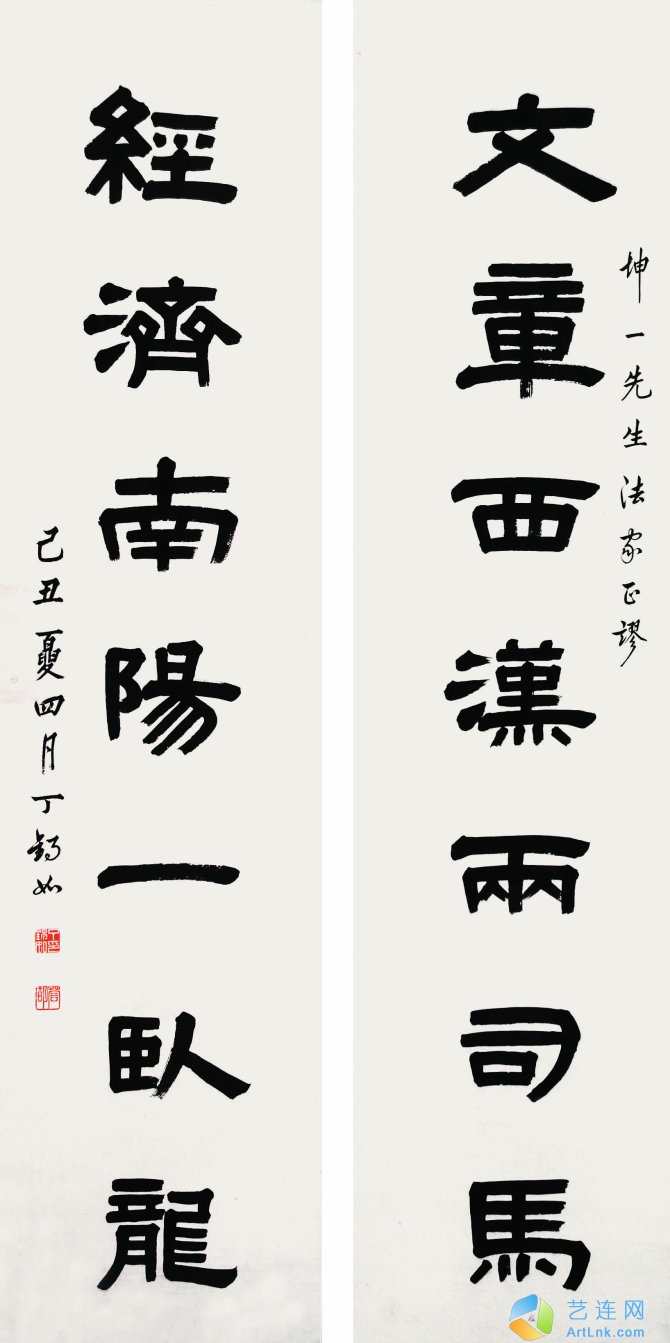 坤一先生法家正謬
文章西漢兩司馬
經濟南陽一臥龍
己丑夏四月丁錫如
艺连网
ArtLnk.com